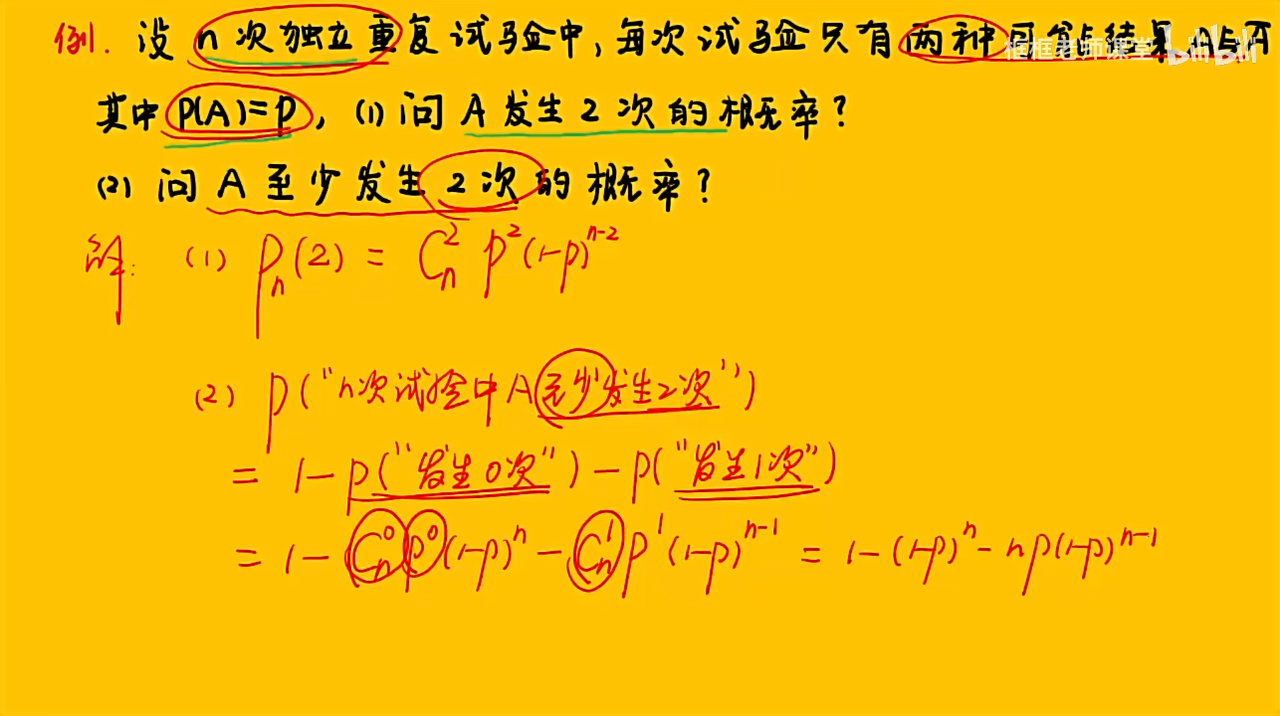 例. 设 n 次独立重复试验中, 每次试验只有两种可能结果 A与Ā
框框老师课堂 bilibili
其中 P(A)=p, (1) 问 A 发生 2 次的概率?
(2) 问 A 至少发生 2次 的概率?
解: (1) Pₙ(2) = Cₙ² p² (1-p)ⁿ⁻²
(2) P("n次试验中A至少发生2次")
= 1-P("发生0次") - P("发生1次")
= 1- Cₙ⁰ p⁰ (1-p)ⁿ - Cₙ¹ p¹ (1-p)ⁿ⁻¹ = 1-(1-p)ⁿ - np(1-p)ⁿ⁻¹